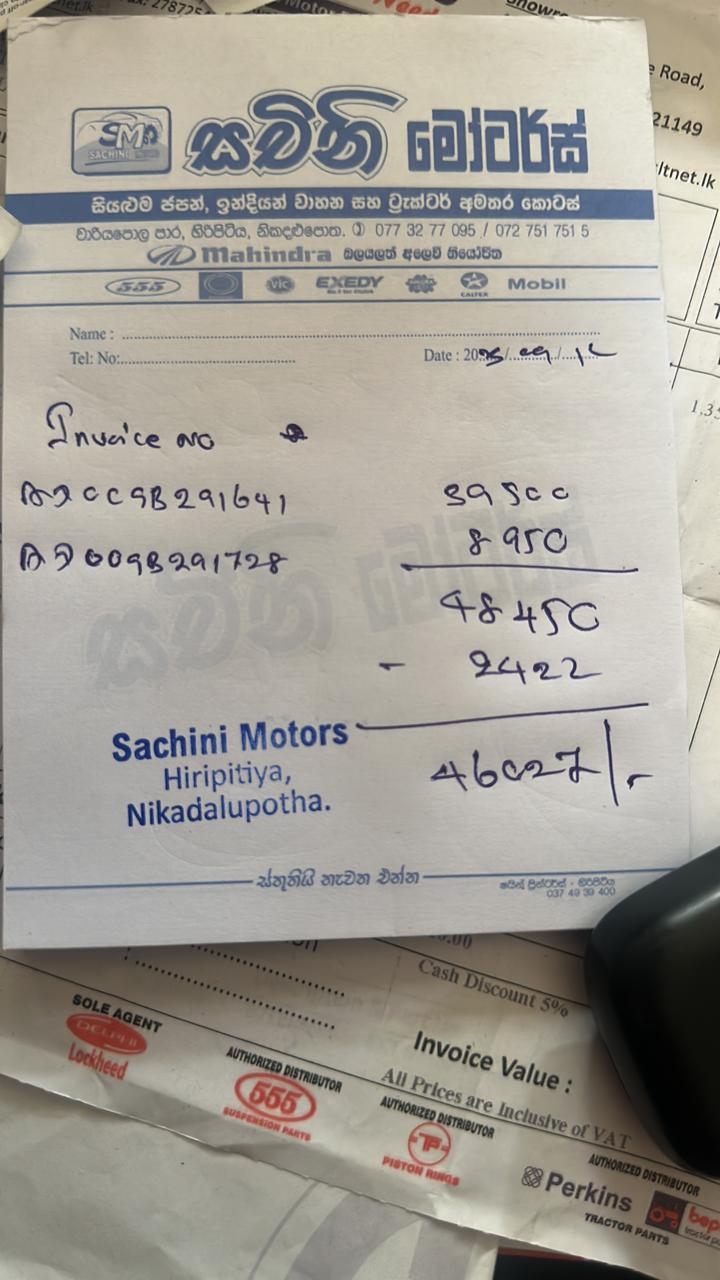 SMS
SACHINI
සචිනි මෝටර්ස්
සියළුම ජපන්, ඉන්දියන් වාහන සහ ට්‍රැක්ටර් අමතර කොටස්
වාරියපොල පාර, හිරිපිටිය, නිකදළුපොත. 077 32 77 095 / 072 751 751 5
Mahindra බලයලත් අලෙවි නියෝජිත
555 vic EXEDY CALTEX Mobil
Name :
Tel: No: Date : 2025/09/12
Invoice no
AD009B291641 39500
AD009B291728 8950
48450
- 2422
46027/-
Sachini Motors
Hiripitiya,
Nikadalupotha.
ස්තූතියි නැවත එන්න
037 49 39 400
Showro
e Road,
21149
ltnet.lk
1,35
Cash Discount 5%
Invoice Value :
All Prices are Inclusive of VAT
SOLE AGENT
DELPHI
Lockheed
AUTHORIZED DISTRIBUTOR
555
SUSPENSION PARTS
AUTHORIZED DISTRIBUTOR
PISTON RINGS
AUTHORIZED DISTRIBUTOR
Perkins
TRACTOR PARTS